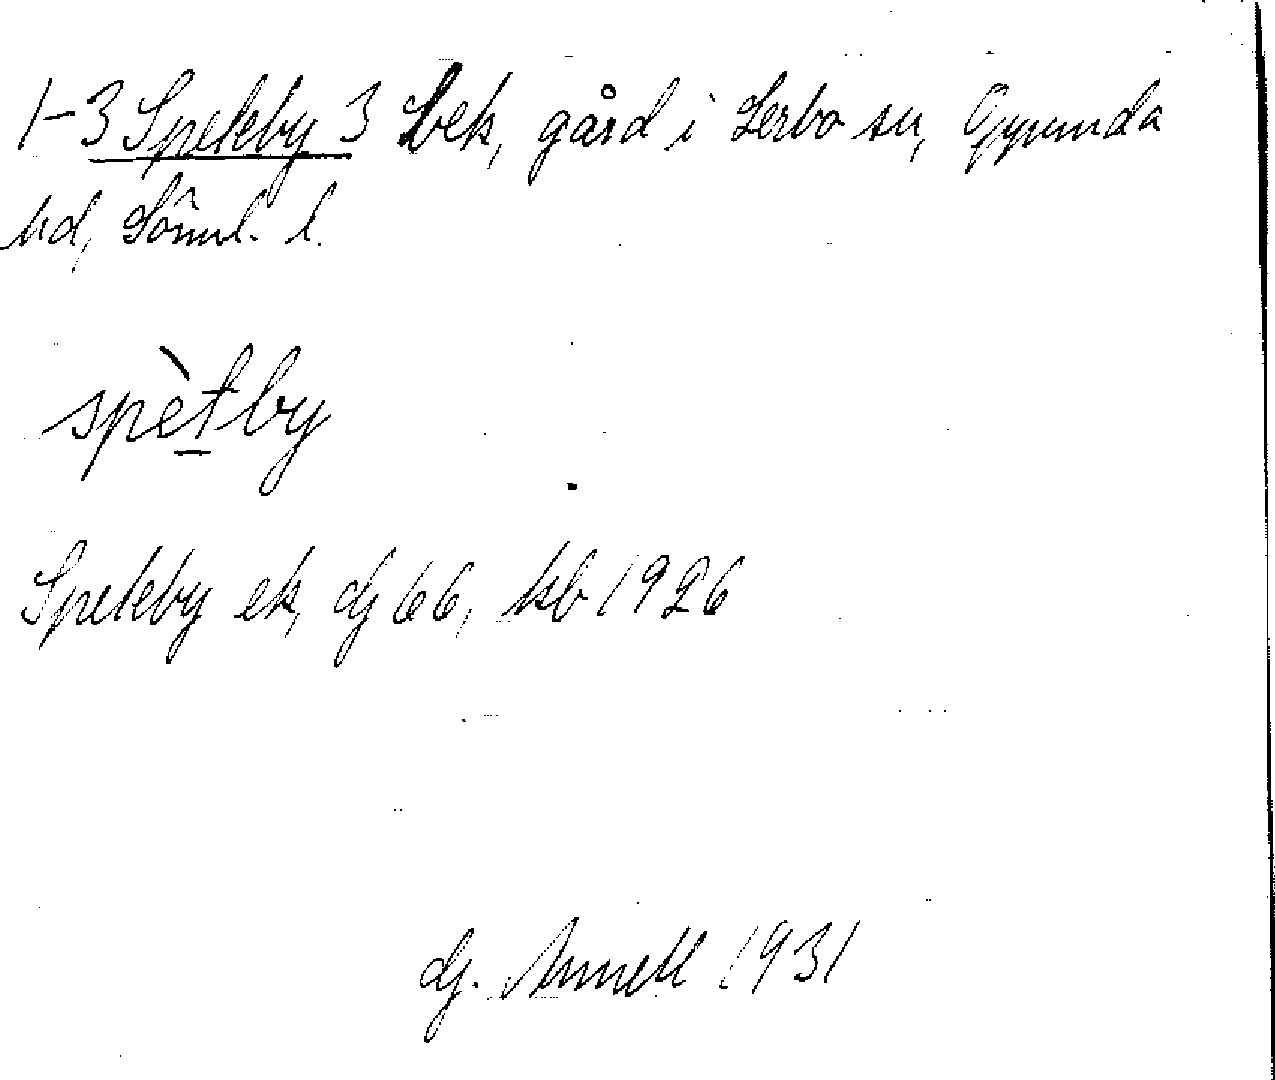 1-3 Speleby 3 bek, gård i Lerbo sn, Oppunda
hd, Söml. l.
spèłby
Speleby ek, dj 66, kb 1926
dj. Arnell 1931